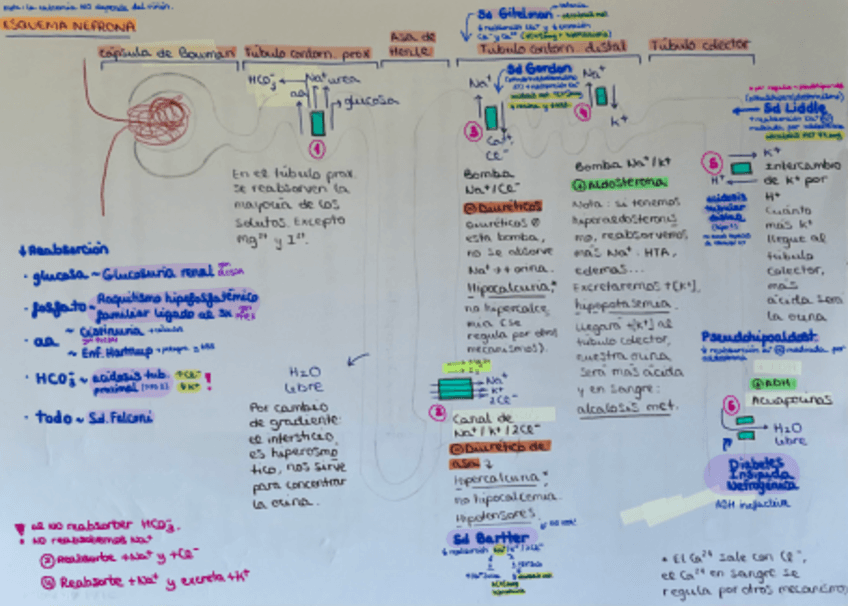 Nota: la calcemia NO depende del riñón.
ESQUEMA NEFRONA
Cápsula de Bouman
Túbulo contorn. prox
Asa de
Henle
Sd Gitelman
Túbulo contorn. distal
Túbulo colector
HCO₃⁻
Na⁺
urea
aa
glucosa
①
En el túbulo prox.
se reabsorven la
mayoría de los
solutos. Excepto
Mg²⁺ y I²⁻.
↓ Reabsorción
· glucosa ~ Glucosuria renal
· fosfato ~ Raquitismo hipofosfatémico
familiar ligado al sx
· aa
~ Cistinuria
~ Enf. Hartnup
· HCO₃⁻ ~ acidosis tub.
proximal
↑Cl⁻
↓K⁺
!
· Todo ~ Sd. Falconi
! al NO reabsorber HCO₃⁻.
! NO reabsorbemos Na⁺
③ Reabsorbe +Na⁺ y +Cl⁻
④ Reabsorbe +Na⁺ y excreta +K⁺
H₂O
LIBRE
Por cambio
de gradiente:
el intersticio
es hiperosmo
tico, nos sirve
para concentrar
la orina.
Sd Gordon
Na⁺
③
Ca²⁺
Cl⁻
Bomba
Na⁺/Cl⁻
⊖ Diuréticos
Diuréticos ⊖
esta bomba,
no se absorve
Na⁺ → ↑ orina.
Hipocalciuria,*
no hipercalce
mia (se
regula por otros
mecanismos).
②
Na⁺
K⁺
2Cl⁻
Canal de
Na⁺/K⁺/2Cl⁻
⊖ Diurético de
asa
Hipercalciuria*
no hipocalcemia.
Hipotensores.
Sd Bartter
Na⁺
④
K⁺
Bomba Na⁺/K⁺
⊕ Aldosterona
Nota: si tenemos
hiperaldosteronis
mo, reabsorvemos
más Na⁺: HTA,
edemas...
Excretaremos +[K⁺],
hipopotasemia.
Llegará +[K⁺] al
túbulo colector,
nuestra orina
será más ácida
y en sangre:
alcalosis met.
Sd Liddle
⑤
K⁺
H⁺
Intercambio
de K⁺ por
H⁺
Cuánto
más K⁺
llegue al
túbulo
colector,
más
ácida será
la orina
acidosis
tubular
distal
Pseudohipoaldost.
⊕ ADH
Acuaporinas
⑥
H₂O
libre
Diabetes
Insípida
Nefrogénica
ADH inefectiva
* El Ca²⁺ sale con Cl⁻,
el Ca²⁺ en sangre se
regula por otros mecanismos